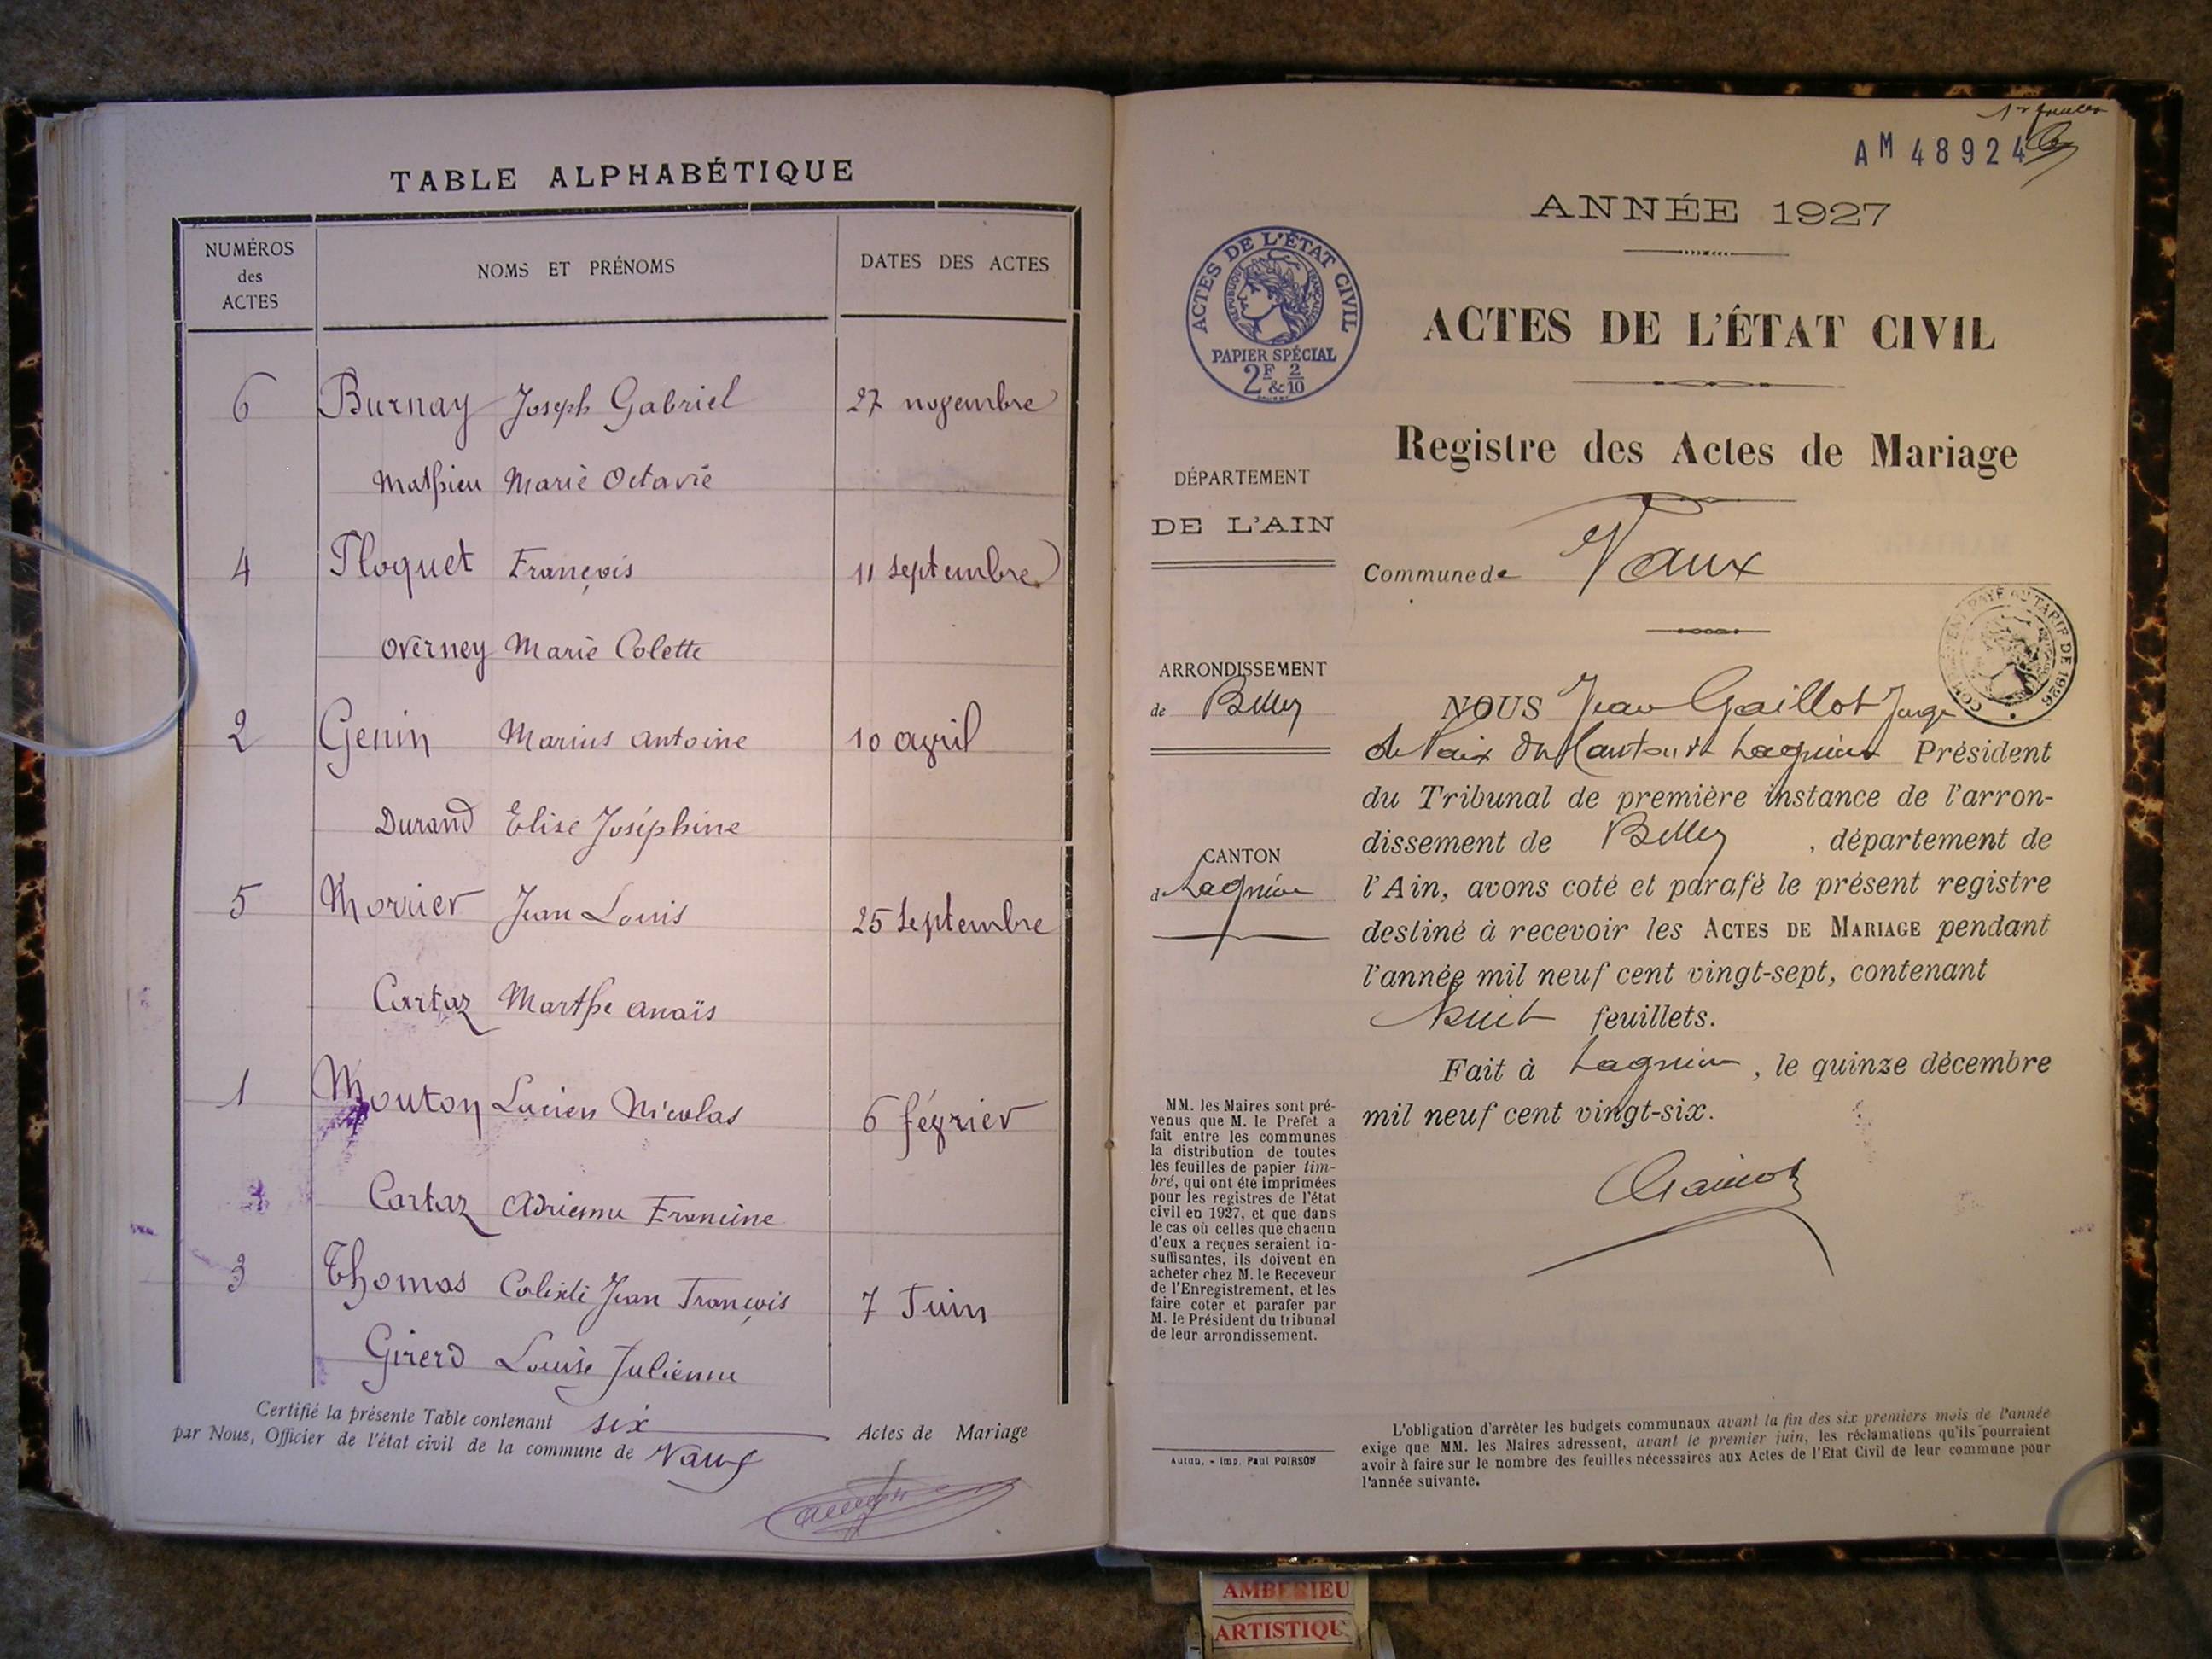 TABLE ALPHABÉTIQUE
NUMÉROS des ACTES
NOMS ET PRÉNOMS
DATES DES ACTES
6 Burnay Joseph Gabriel 27 novembre
Mathieu Marie Octavie
4 Floquet François 11 septembre
Overney Marie Colette
2 Genin Marius Antoine 10 avril
Durand Elise Joséphine
5 Morrier Jean Louis 25 septembre
Cartaz Marthe Anaïs
1 Mouton Lucien Nicolas 6 février
Cartaz Adrienne Francine
3 Thomas Calixte Jean François 7 Juin
Girerd Louise Julienne
Certifié la présente Table contenant six Actes de Mariage
par Nous, Officier de l'état civil de la commune de Vaux
AM 48924
ANNÉE 1927
ACTES DE L'ÉTAT CIVIL
RÉPUBLIQUE FRANÇAISE
PAPIER SPÉCIAL
2F & 2/10
ACTES DE L'ÉTAT CIVIL
Registre des Actes de Mariage
DÉPARTEMENT
DE L'AIN
Commune de Vaux
ARRONDISSEMENT
de Belley
CANTON
de Lagnieu
NOUS Jean Gaillot Juge
de Paix du Canton de Lagnieu Président
du Tribunal de première instance de l'arron-
dissement de Belley, département de
l'Ain, avons coté et parafé le présent registre
destiné à recevoir les ACTES DE MARIAGE pendant
l'année mil neuf cent vingt-sept, contenant
huit feuillets.
Fait à Lagnieu, le quinze décembre
mil neuf cent vingt-six.
MM. les Maires sont pré-
venus que M. le Préfet a
fait entre les communes
la distribution de toutes
les feuilles de papier tim-
bré, qui ont été imprimées
pour les registres de l'état
civil en 1927, et que dans
le cas où celles que chacun
d'eux a reçues seraient in-
suffisantes, ils doivent en
acheter chez M. le Receveur
de l'Enregistrement, et les
faire coter et parafer par
M. le Président du tribunal
de leur arrondissement.
Autun. - Imp. Paul POIRSON
L'obligation d'arrêter les budgets communaux avant la fin des six premiers mois de l'année
exige que MM. les Maires adressent, avant le premier juin, les réclamations qu'ils pourraient
avoir à faire sur le nombre des feuilles nécessaires aux Actes de l'Etat Civil de leur commune pour
l'année suivante.
AMBERIEU
ARTISTIQU